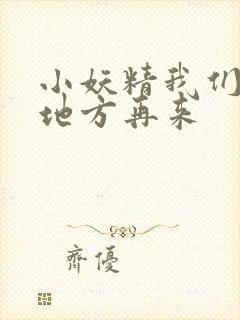 小妖精我们
地方再来
齊優